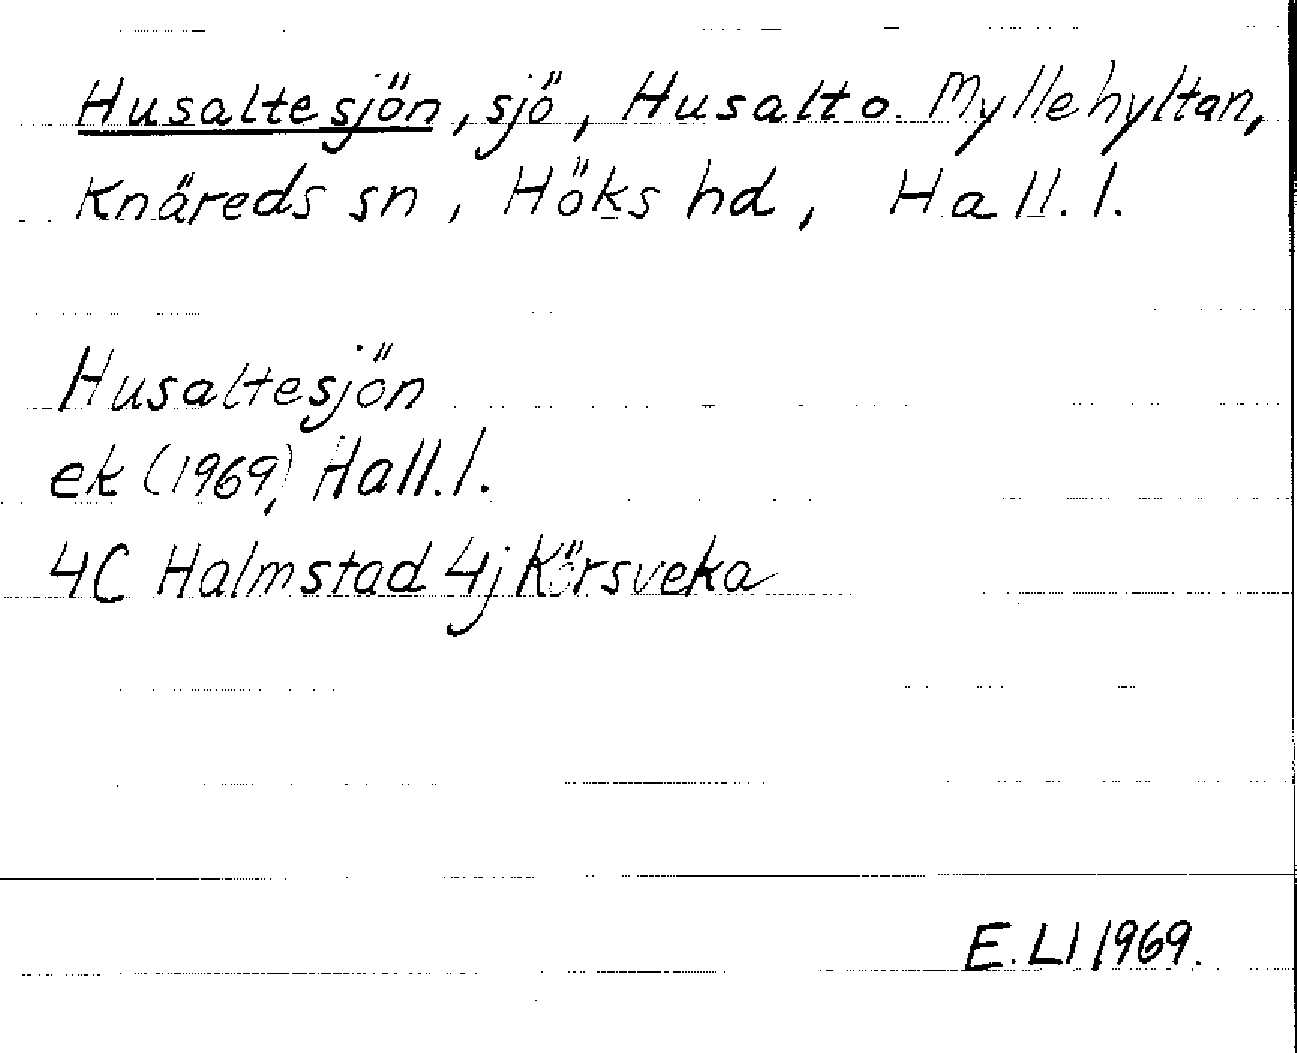 Husaltesjön, sjö, Husalt o. Myllehyltan,
Knäreds sn, Höks hd, Hall. l.
Husaltesjön
ek (1969), Hall. l.
4C Halmstad 4j Körsveka
E. Ll 1969.